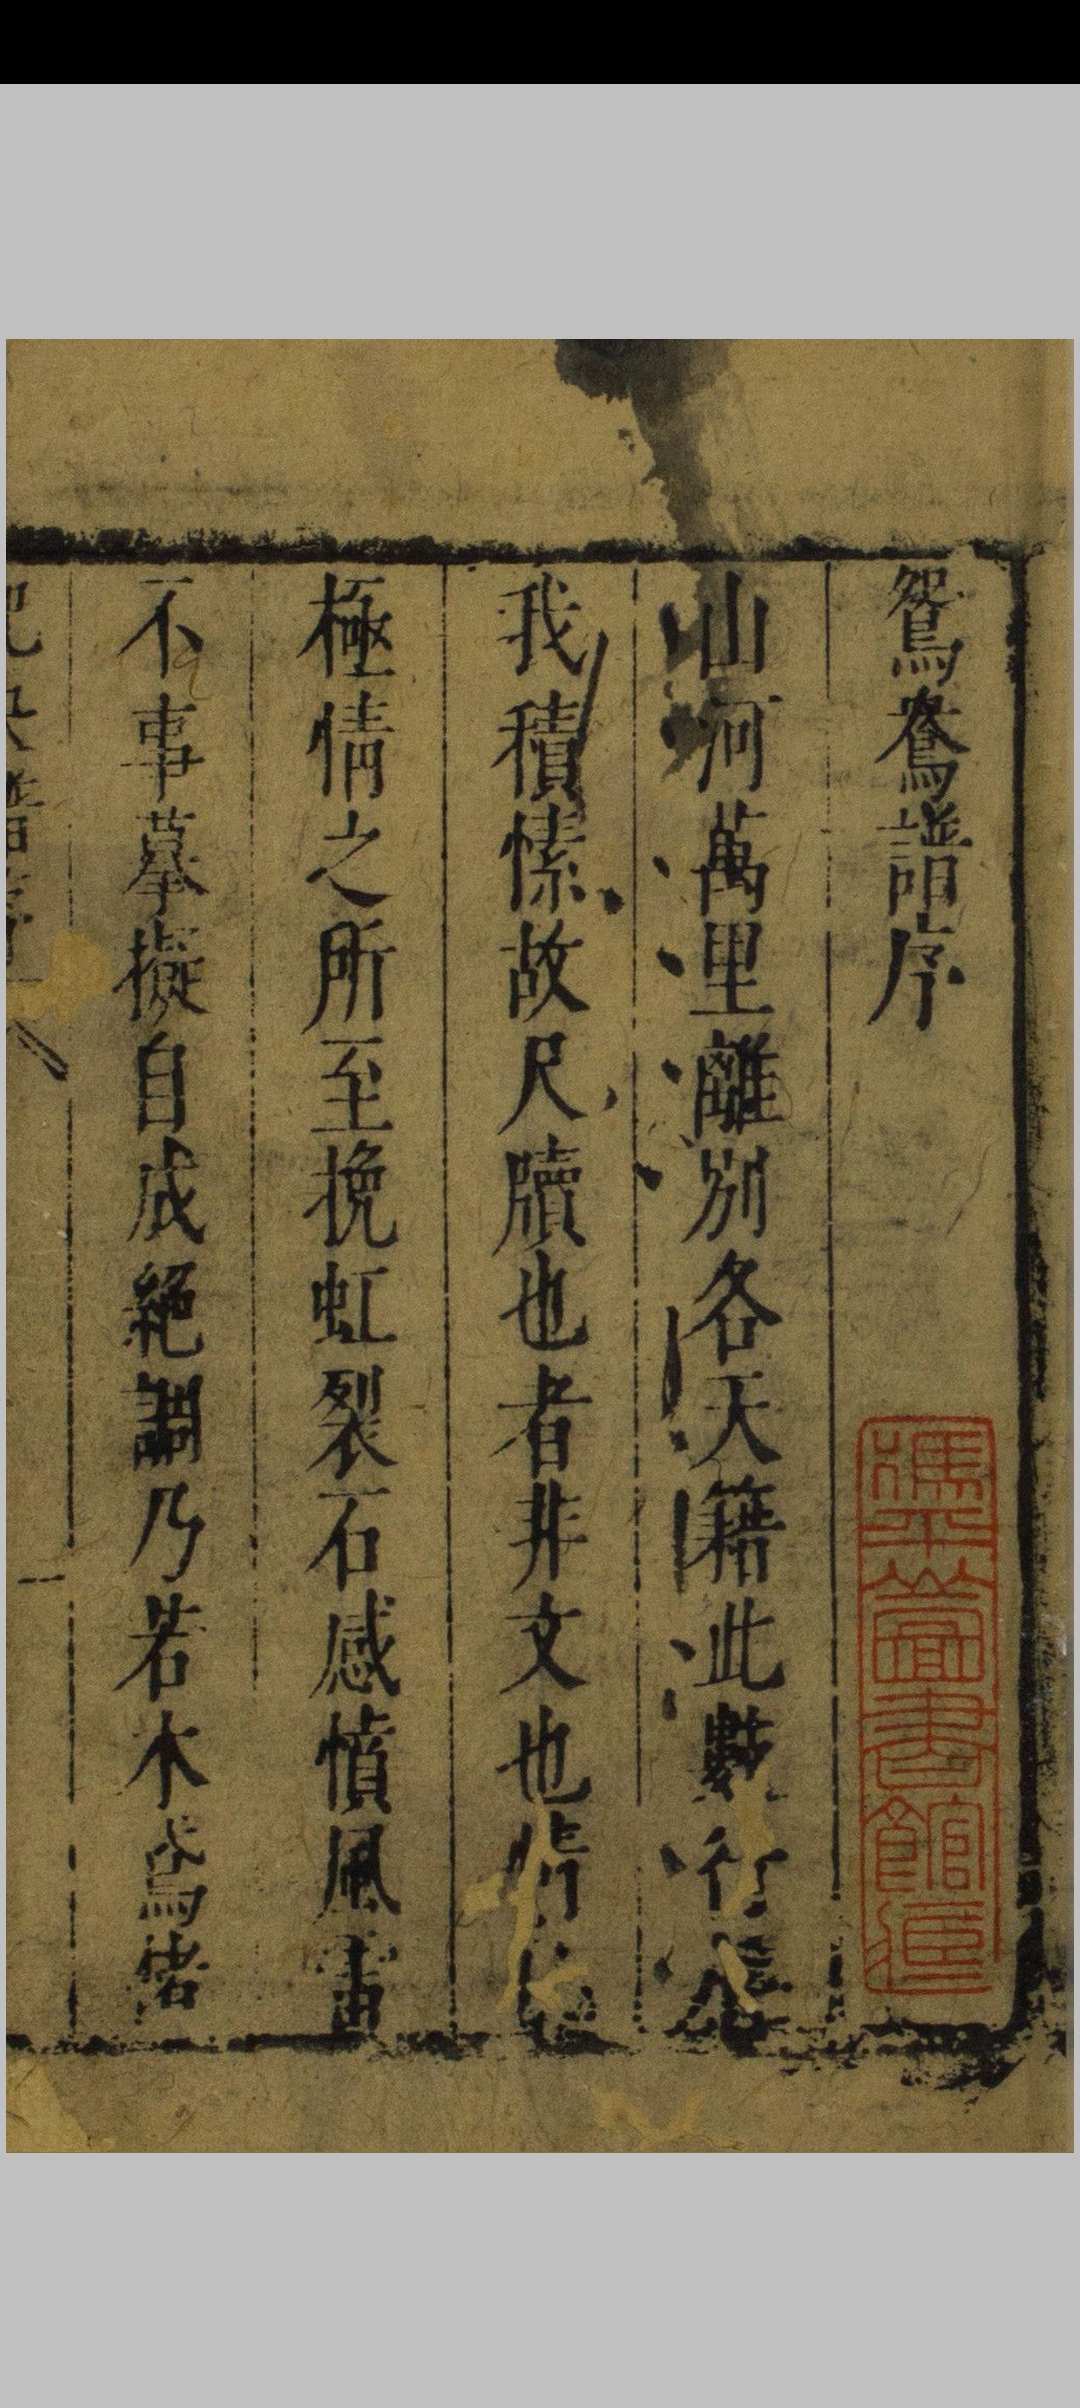 鴛鴦譜序
山河萬里離別各天籍此數行
我積愫故尺牘也者非文也情
極情之所至挽虹裂石感憤風雷
不事摹擬自成絕調乃若木鳶